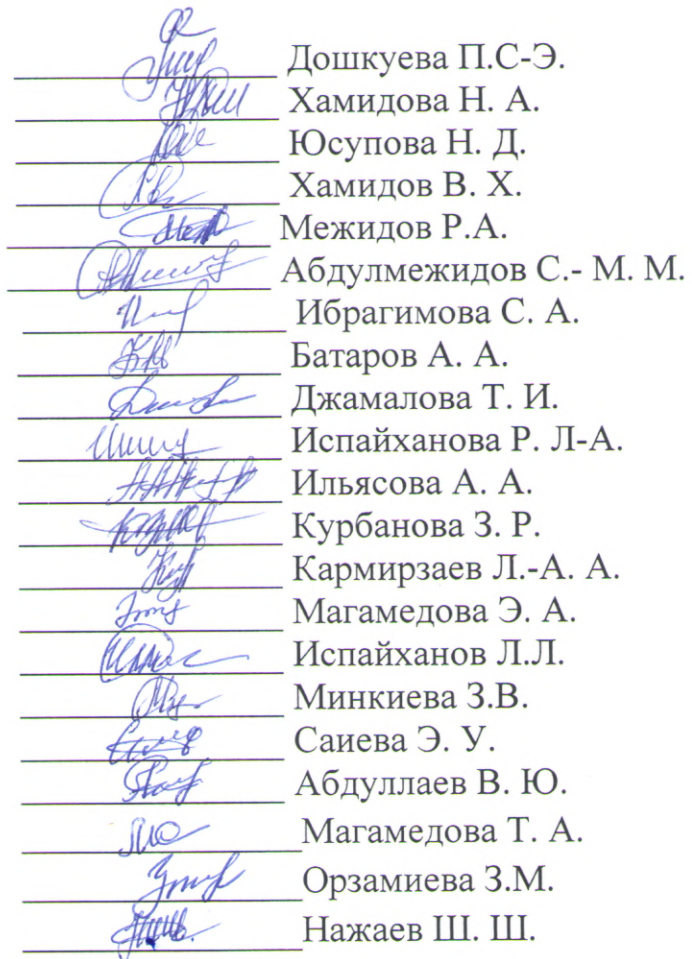 Дошкуева П.С-Э.
Хамидова Н. А.
Юсупова Н. Д.
Хамидов В. Х.
Межидов Р.А.
Абдулмежидов С.- М. М.
Ибрагимова С. А.
Батаров А. А.
Джамалова Т. И.
Испайханова Р. Л-А.
Ильясова А. А.
Курбанова З. Р.
Кармирзаев Л.-А. А.
Магамедова Э. А.
Испайханов Л.Л.
Минкиева З.В.
Саиева Э. У.
Абдуллаев В. Ю.
Магамедова Т. А.
Орзамиева З.М.
Нажаев Ш. Ш.